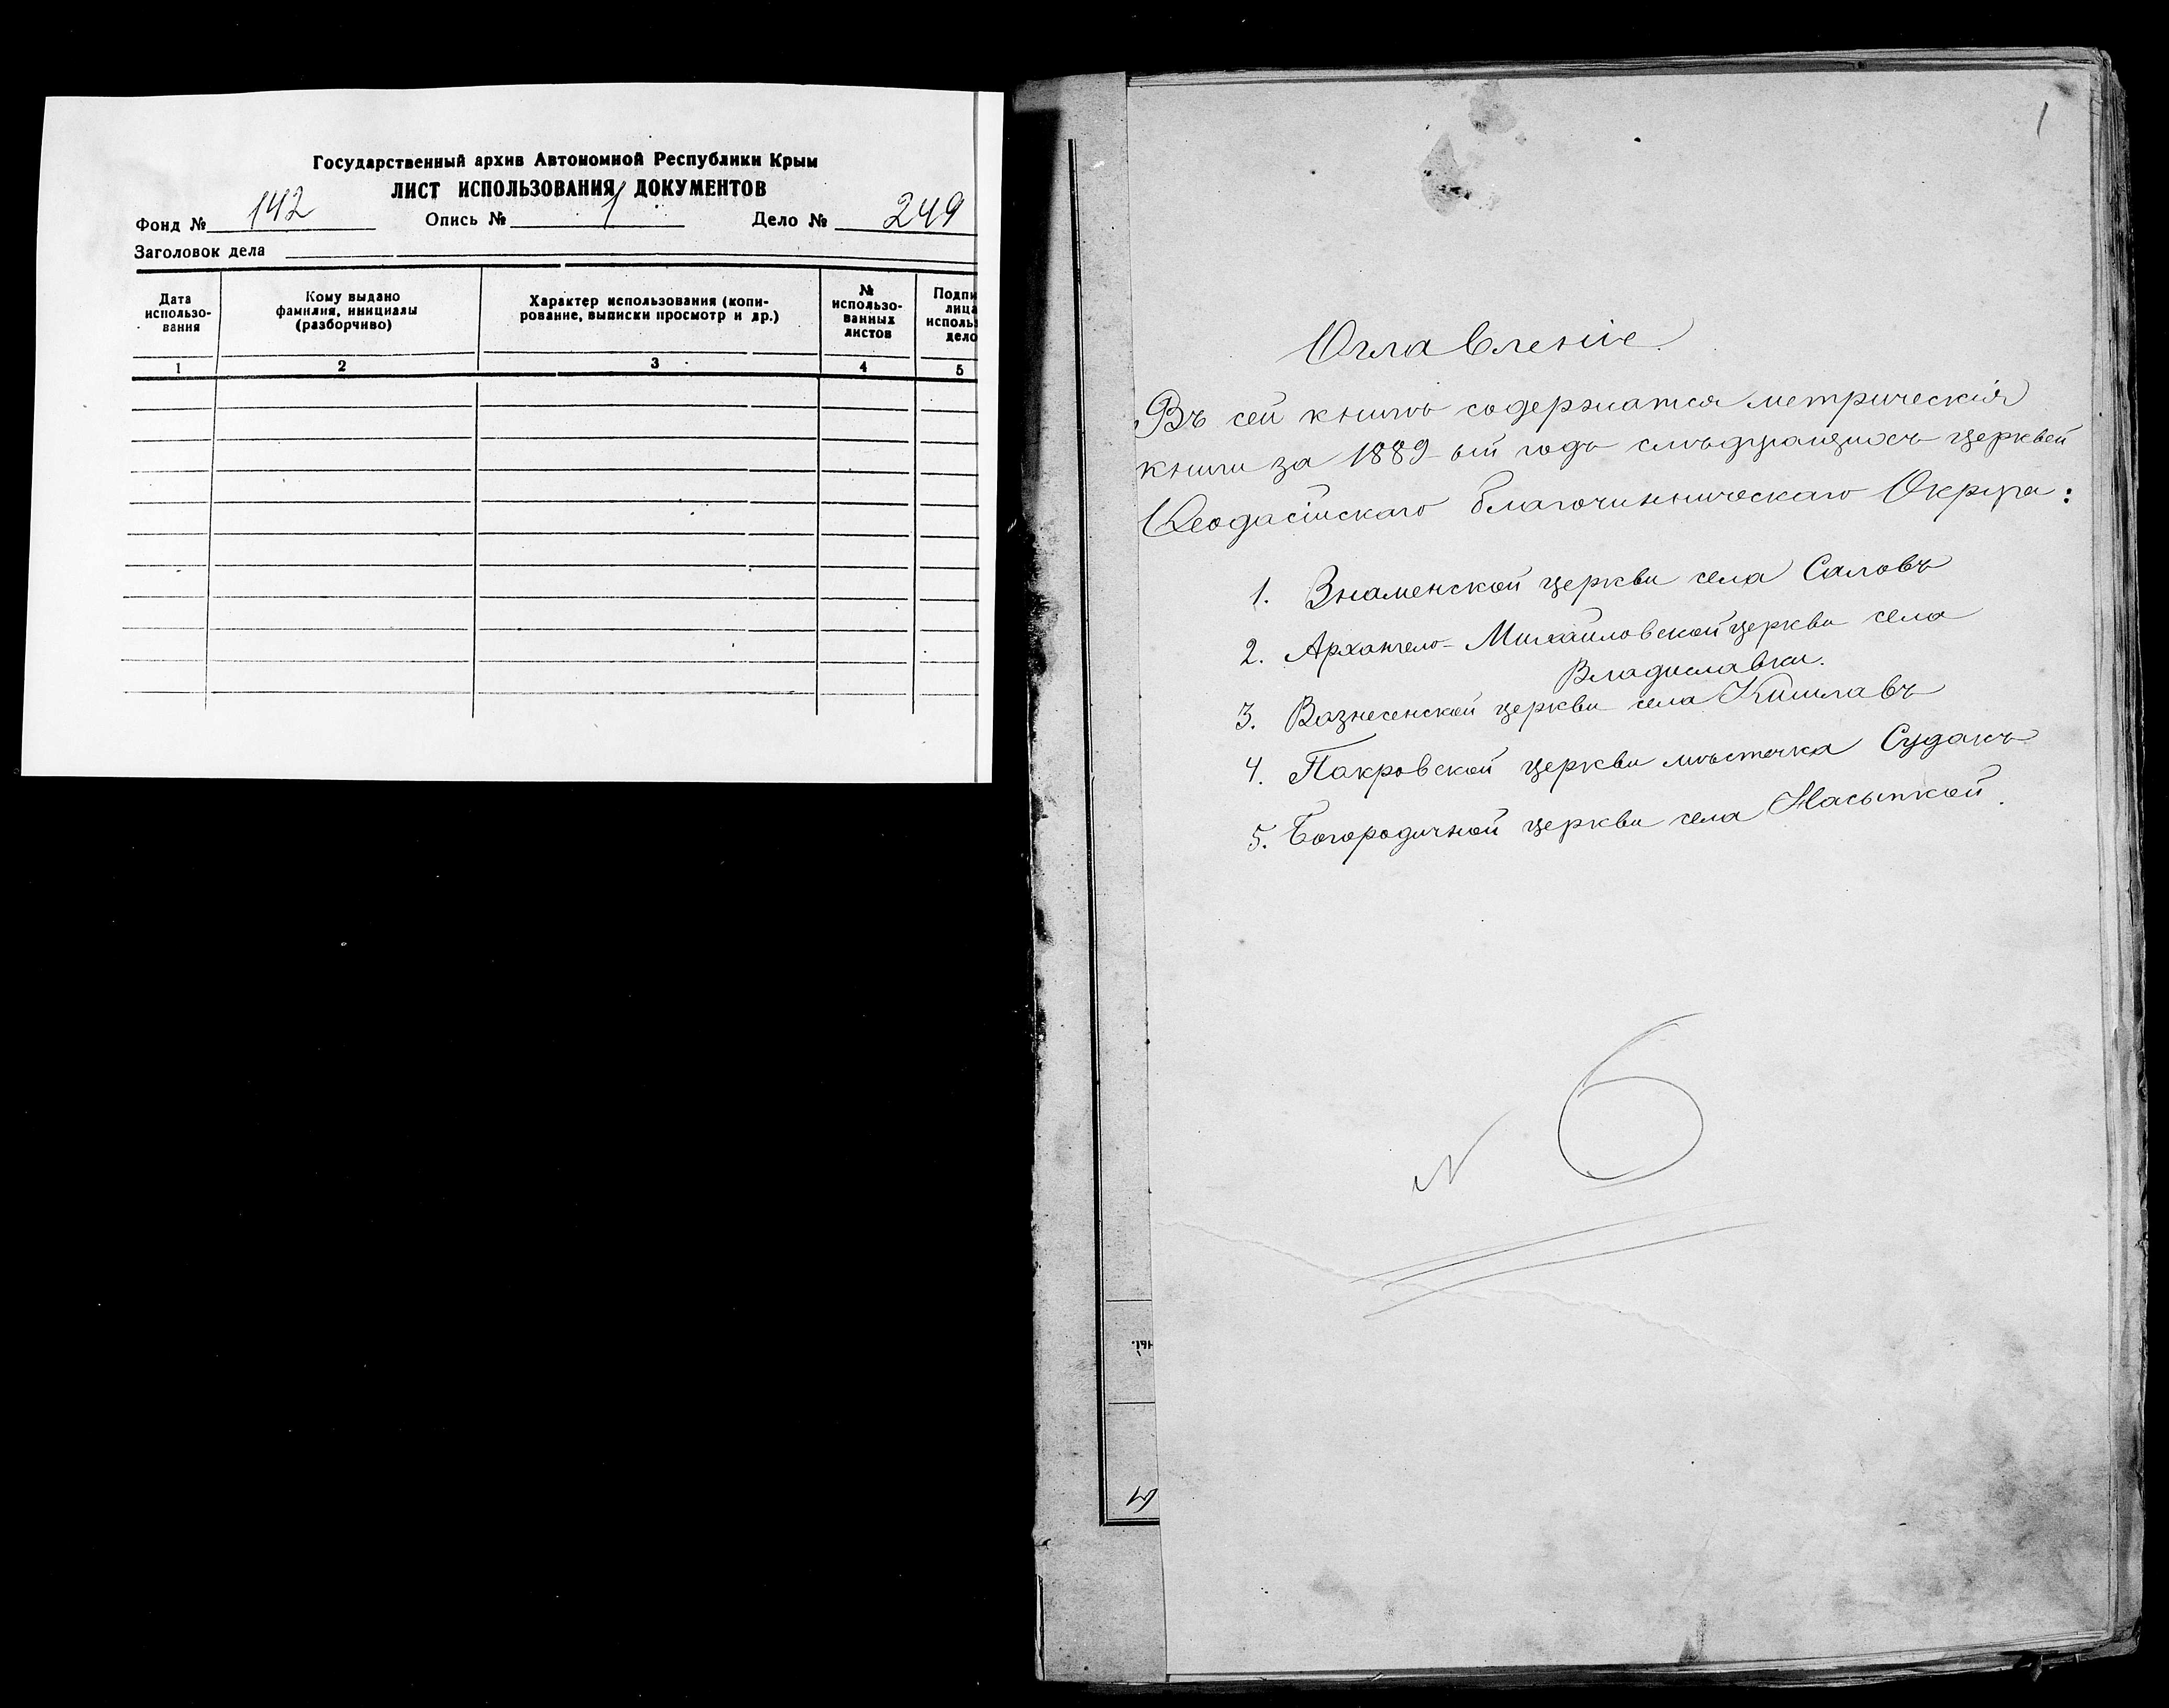 Государственный архив Автономной Республики Крым
ЛИСТ ИСПОЛЬЗОВАНИЯ ДОКУМЕНТОВ
Фонд № 142 Опись № 1 Дело № 249
Заголовок дела
Дата использо-вания
Кому выдано фамилия, инициалы (разборчиво)
Характер использования (копи-рование, выписки просмотр и др.)
№ использо-ванных листов
Подпи лица исполь дело
1 2 3 4 5
1
Оглавленіе.
Въ сей книгѣ содержатся метрическія
книги за 1889-ый годъ слѣдующихъ церквей
Ѳеодосійскаго благочинническаго Округа:
1. Знаменской церкви села Саловъ
2. Архангело-Михайловской церкви села
Владиславки.
3. Вознесенской церкви села Кишлавъ
4. Покровской церкви мѣстечка Судакъ
5. Богородичной церкви села Насыпкой.
N 6
ный.